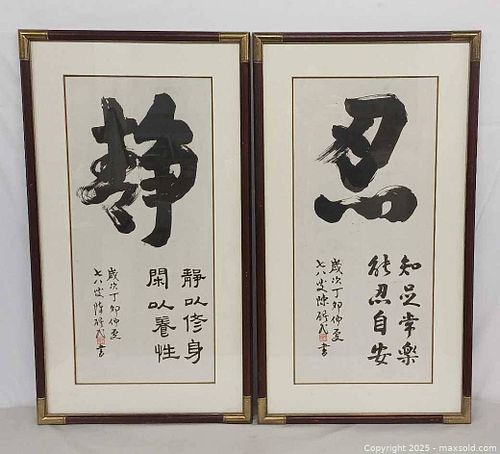 靜
靜以修身
閑以養性
歲次丁卯仲夏
七八叟陳
書
忍
知足常樂
能忍自安
歲次丁卯仲夏
七八叟陳
書
Copyright © 2025 - maxsold.com